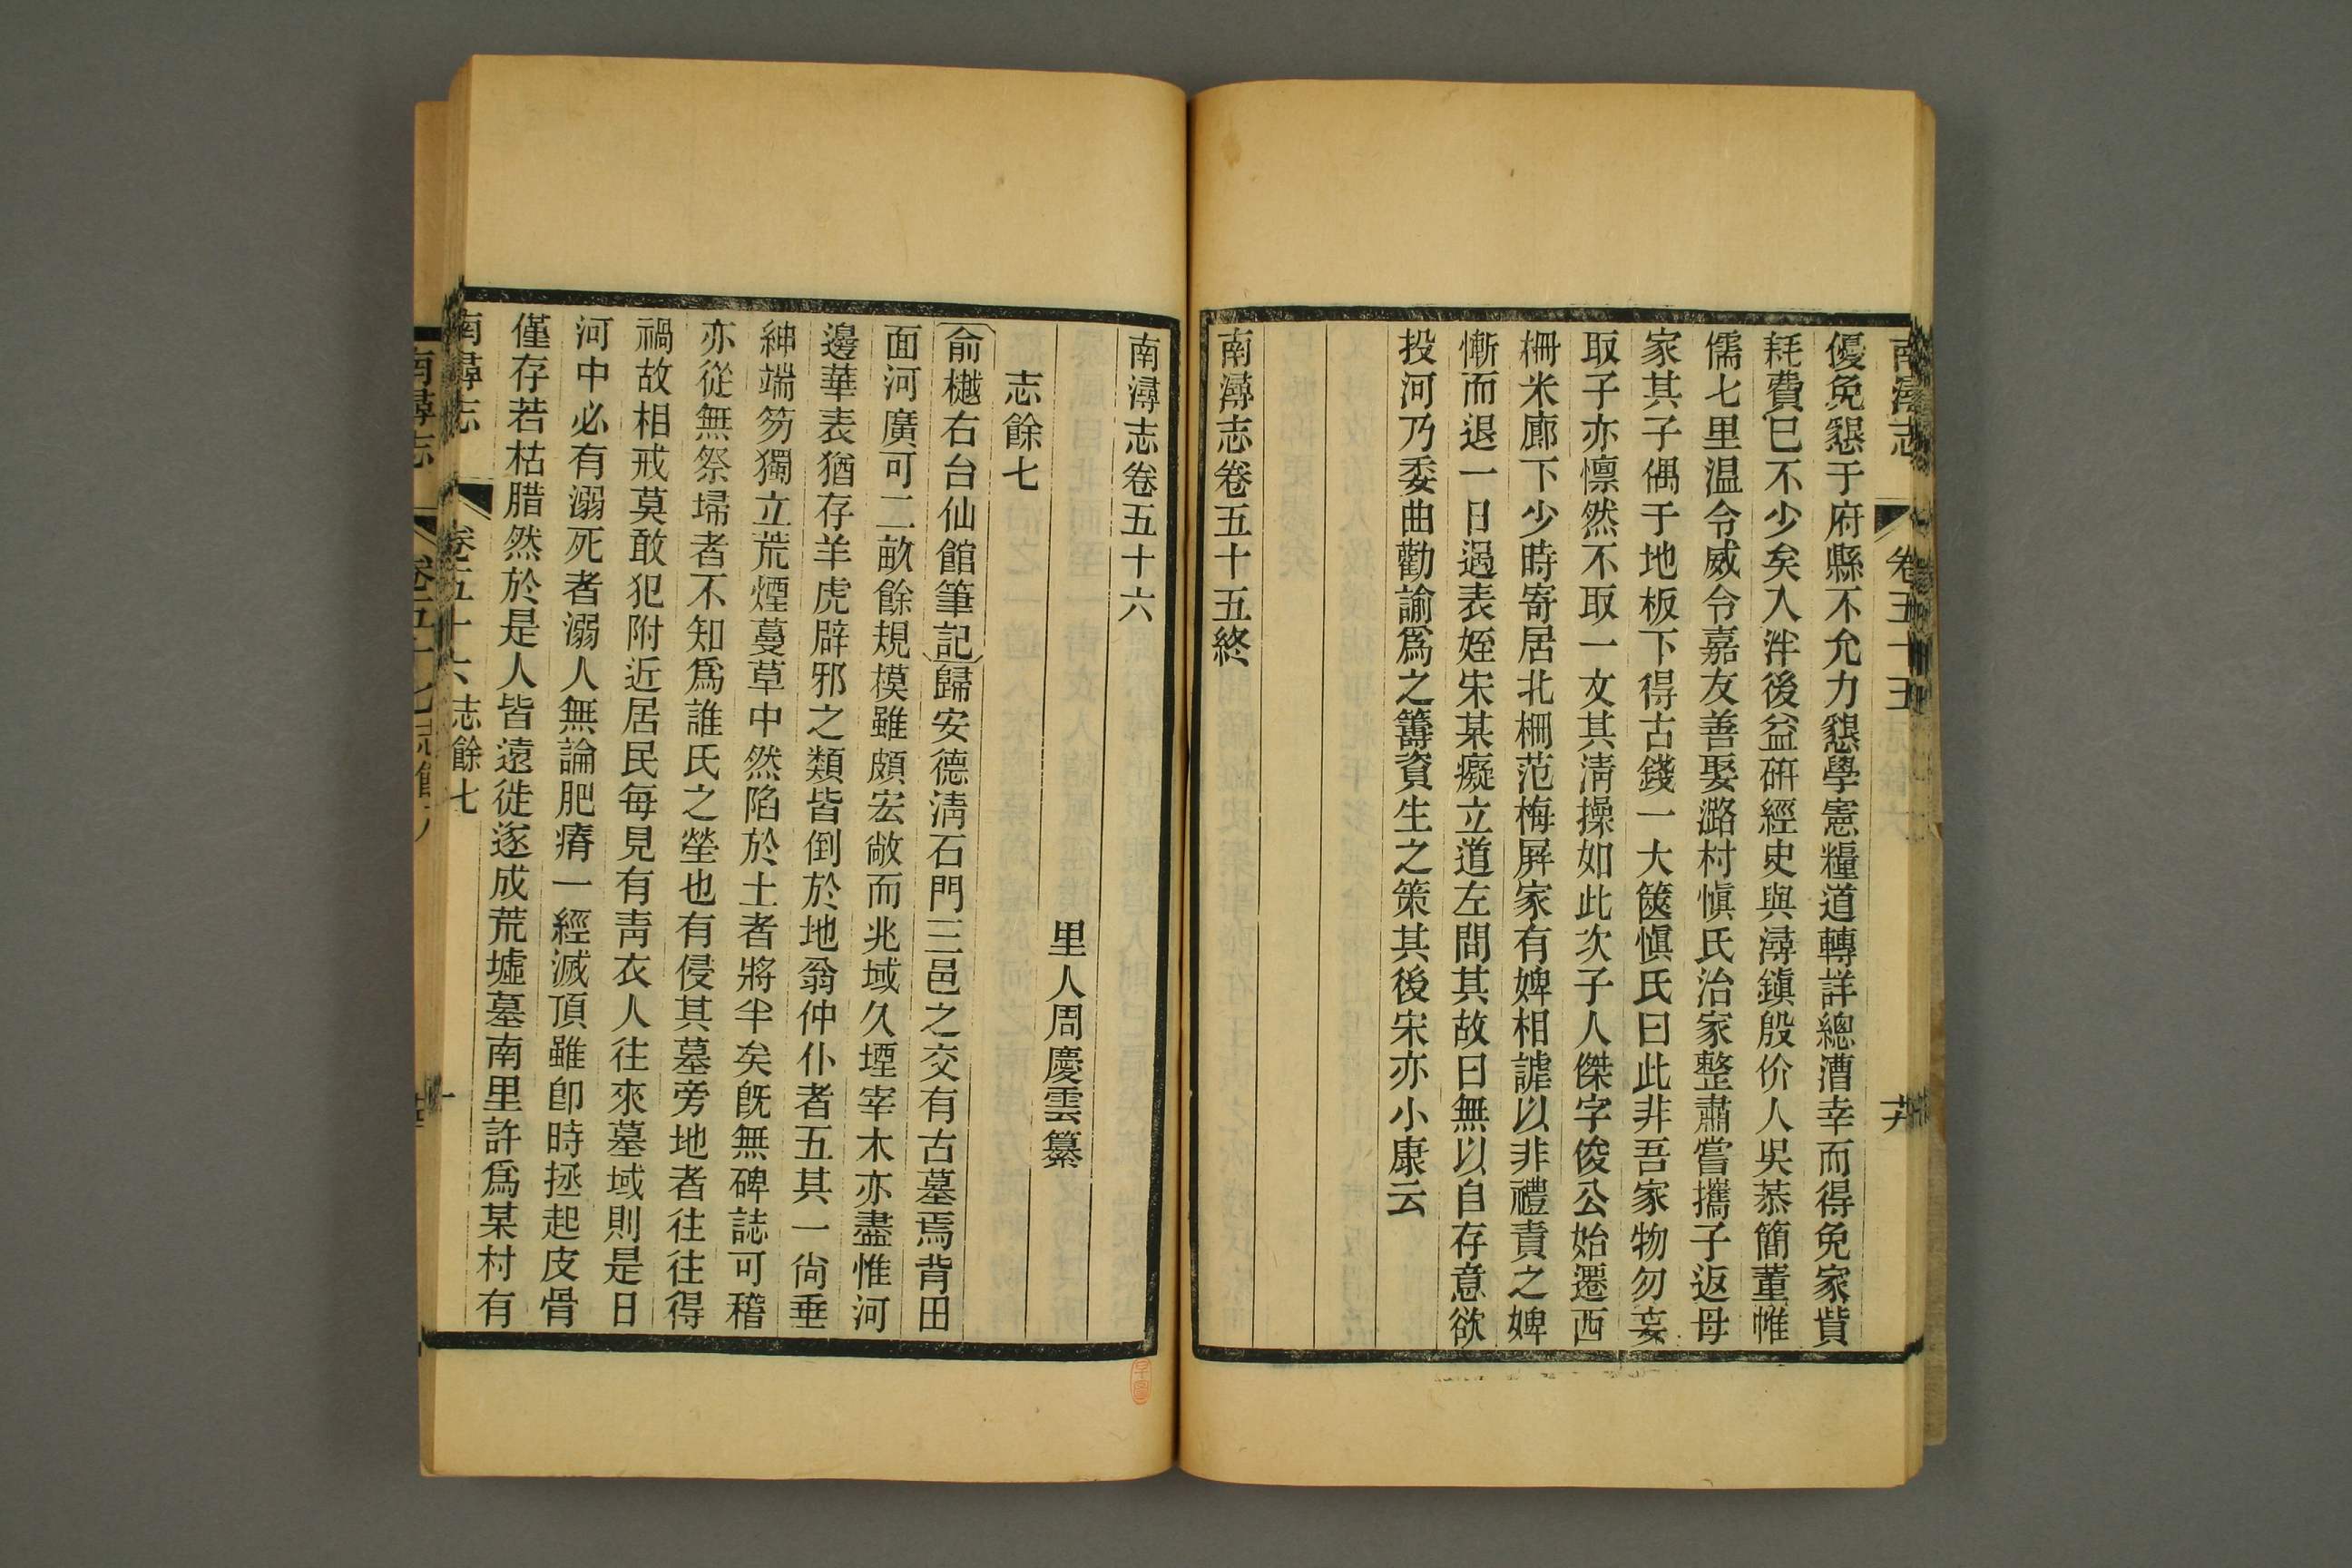 南潯志
卷五十五
優免懇于府縣不允力懇學憲糧道轉詳總漕幸而得免家貲
耗費已不少矣入泮後益硏經史與潯鎮殷价人吳恭簡董帷
儒七里温令威令嘉友善娶潞村愼氏治家整肅嘗攜子返母
家其子偶于地板下得古錢一大篋愼氏曰此非吾家物勿妄
取子亦懍然不取一文其淸操如此次子人傑字俊公始遷西
柵米廊下少時寄居北柵范梅屛家有婢相謔以非禮責之婢
慚而退一日過表姪宋某癡立道左問其故曰無以自存意欲
投河乃委曲勸諭爲之籌資生之策其後宋亦小康云
南潯志卷五十五終
南潯志卷五十六
里人周慶雲纂
志餘七
俞樾右台仙館筆記歸安德淸石門三邑之交有古墓焉背田
面河廣可二畝餘規模雖頗宏敞而兆域久堙宰木亦盡惟河
邊華表猶存羊虎辟邪之類皆倒於地翁仲仆者五其一尙垂
紳端笏獨立荒煙蔓草中然陷於土者將半矣旣無碑誌可稽
亦從無祭埽者不知爲誰氏之塋也有侵其墓旁地者往往得
禍故相戒莫敢犯附近居民每見有靑衣人往來墓域則是日
河中必有溺死者溺人無論肥瘠一經滅頂雖卽時拯起皮骨
僅存若枯腊然於是人皆遠徙遂成荒墟墓南里許爲某村有
南潯志
卷五十六 志餘七
一
南潯志